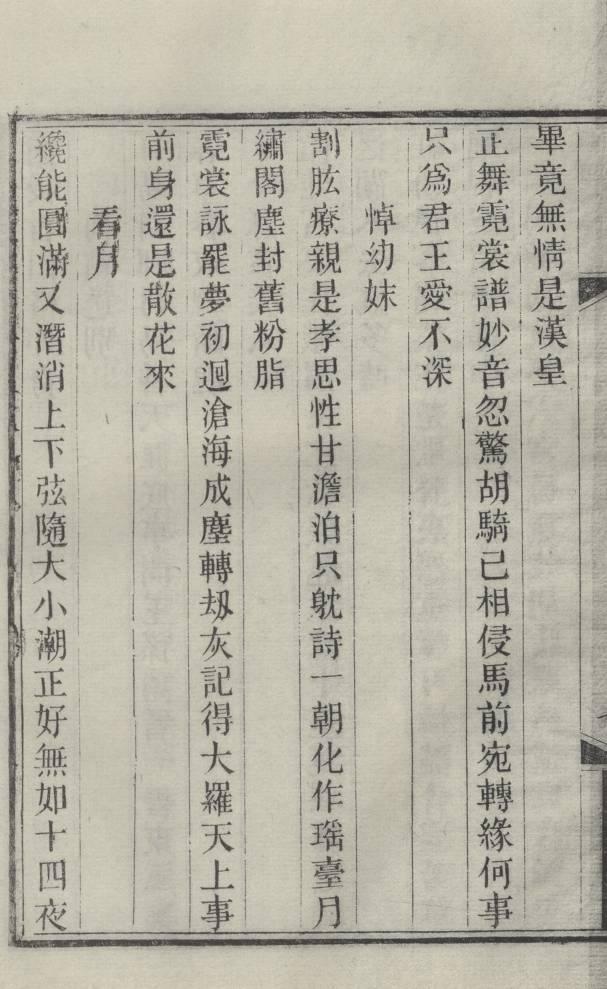 畢竟無情是漢皇
正舞霓裳譜妙音忽驚胡騎已相侵馬前宛轉緣何事
只爲君王愛不深
悼幼妹
割肱療親是孝思性甘澹泊只躭詩一朝化作瑶臺月
繡閣塵封舊粉脂
霓裳詠罷夢初迴滄海成塵轉刼灰記得大羅天上事
前身還是散花來
看月
纔能圓滿又潛消上下弦隨大小潮正好無如十四夜